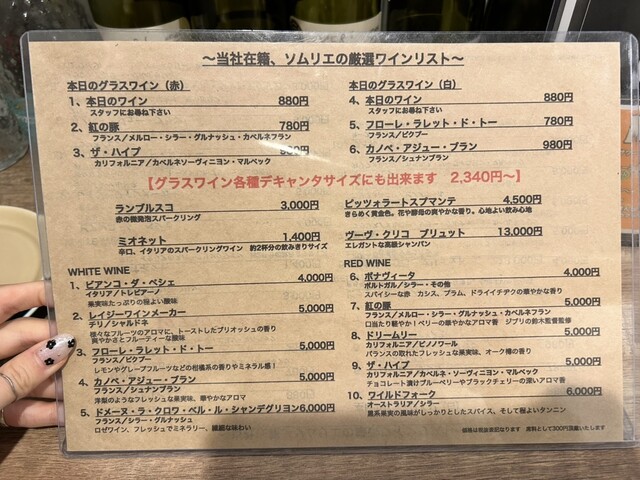 〜当社在籍、ソムリエの厳選ワインリスト〜
本日のグラスワイン（赤）
1、本日のワイン 880円
スタッフにお尋ね下さい
2、紅の豚 780円
フランス／メルロー・シラー・グルナッシュ・カベルネフラン
3、ザ・ハイブ
カリフォルニア／カベルネソーヴィニヨン・マルベック
本日のグラスワイン（白）
4、本日のワイン 880円
スタッフにお尋ね下さい
5、フローレ・ラレット・ド・トー 780円
フランス／ピクプー
6、カノベ・アジュー・ブラン 980円
フランス／シュナンブラン
【グラスワイン各種デキャンタサイズにも出来ます 2,340円〜】
ランブルスコ 3,000円
赤の微発泡スパークリング
ミオネット 1,400円
辛口、イタリアのスパークリングワイン 約2杯分の飲みきりサイズ
ピッツォラートスプマンテ 4,500円
きらめく黄金色。花や酵母の爽やかな香り。心地よい飲み心地
ヴーヴ・クリコ ブリュット 13,000円
エレガントな高級シャンパン
WHITE WINE
1、ビアンコ・ダ・ペシェ 4,000円
イタリア／トレビアーノ
果実味たっぷりの程よい酸味
2、レイジーワインメーカー 5,000円
チリ／シャルドネ
様々なフルーツのアロマに、トーストしたブリオッシュの香り
爽やかさとフルーティーな酸味
3、フローレ・ラレット・ド・トー 5,000円
フランス／ピクプー
レモンやグレープフルーツなどの柑橘系の香りやミネラル感！
4、カノベ・アジュー・ブラン 5,000円
フランス／シュナンブラン
洋梨のようなフレッシュな果実味、華やかなアロマ
5、ドメーヌ・ラ・クロワ・ベル・ル・シャンデグリヨン 6,000円
フランス／シラー・グルナッシュ
ロゼワイン、フレッシュでミネラリー、繊細な味わい
RED WINE
6、ボナヴィータ 4,000円
ポルトガル／シラー・その他
スパイシーな赤 カシス、プラム、ドライイチヂクの華やかな香り
7、紅の豚 5,000円
フランス／メルロー・シラー・グルナッシュ・カベルネフラン
口当たり軽やか！ベリーの華やかなアロマ香 ジブリの鈴木敏夫監修
8、ドリームリー 5,000円
カリフォルニア／ピノノワール
バランスの取れたフレッシュな果実味、オーク樽の香り
9、ザ・ハイブ 5,000円
カリフォルニア／カベルネ・ソーヴィニヨン・マルベック
チョコレート漬けブルーベリーやブラックチェリーの深いアロマ香
10、ワイルドフォーク 6,000円
オーストラリア／シラー
黒系果実の風味がしっかりとしたスパイス、そして程よいタンニン
価格は税抜表記なります 席料として300円頂戴いたします